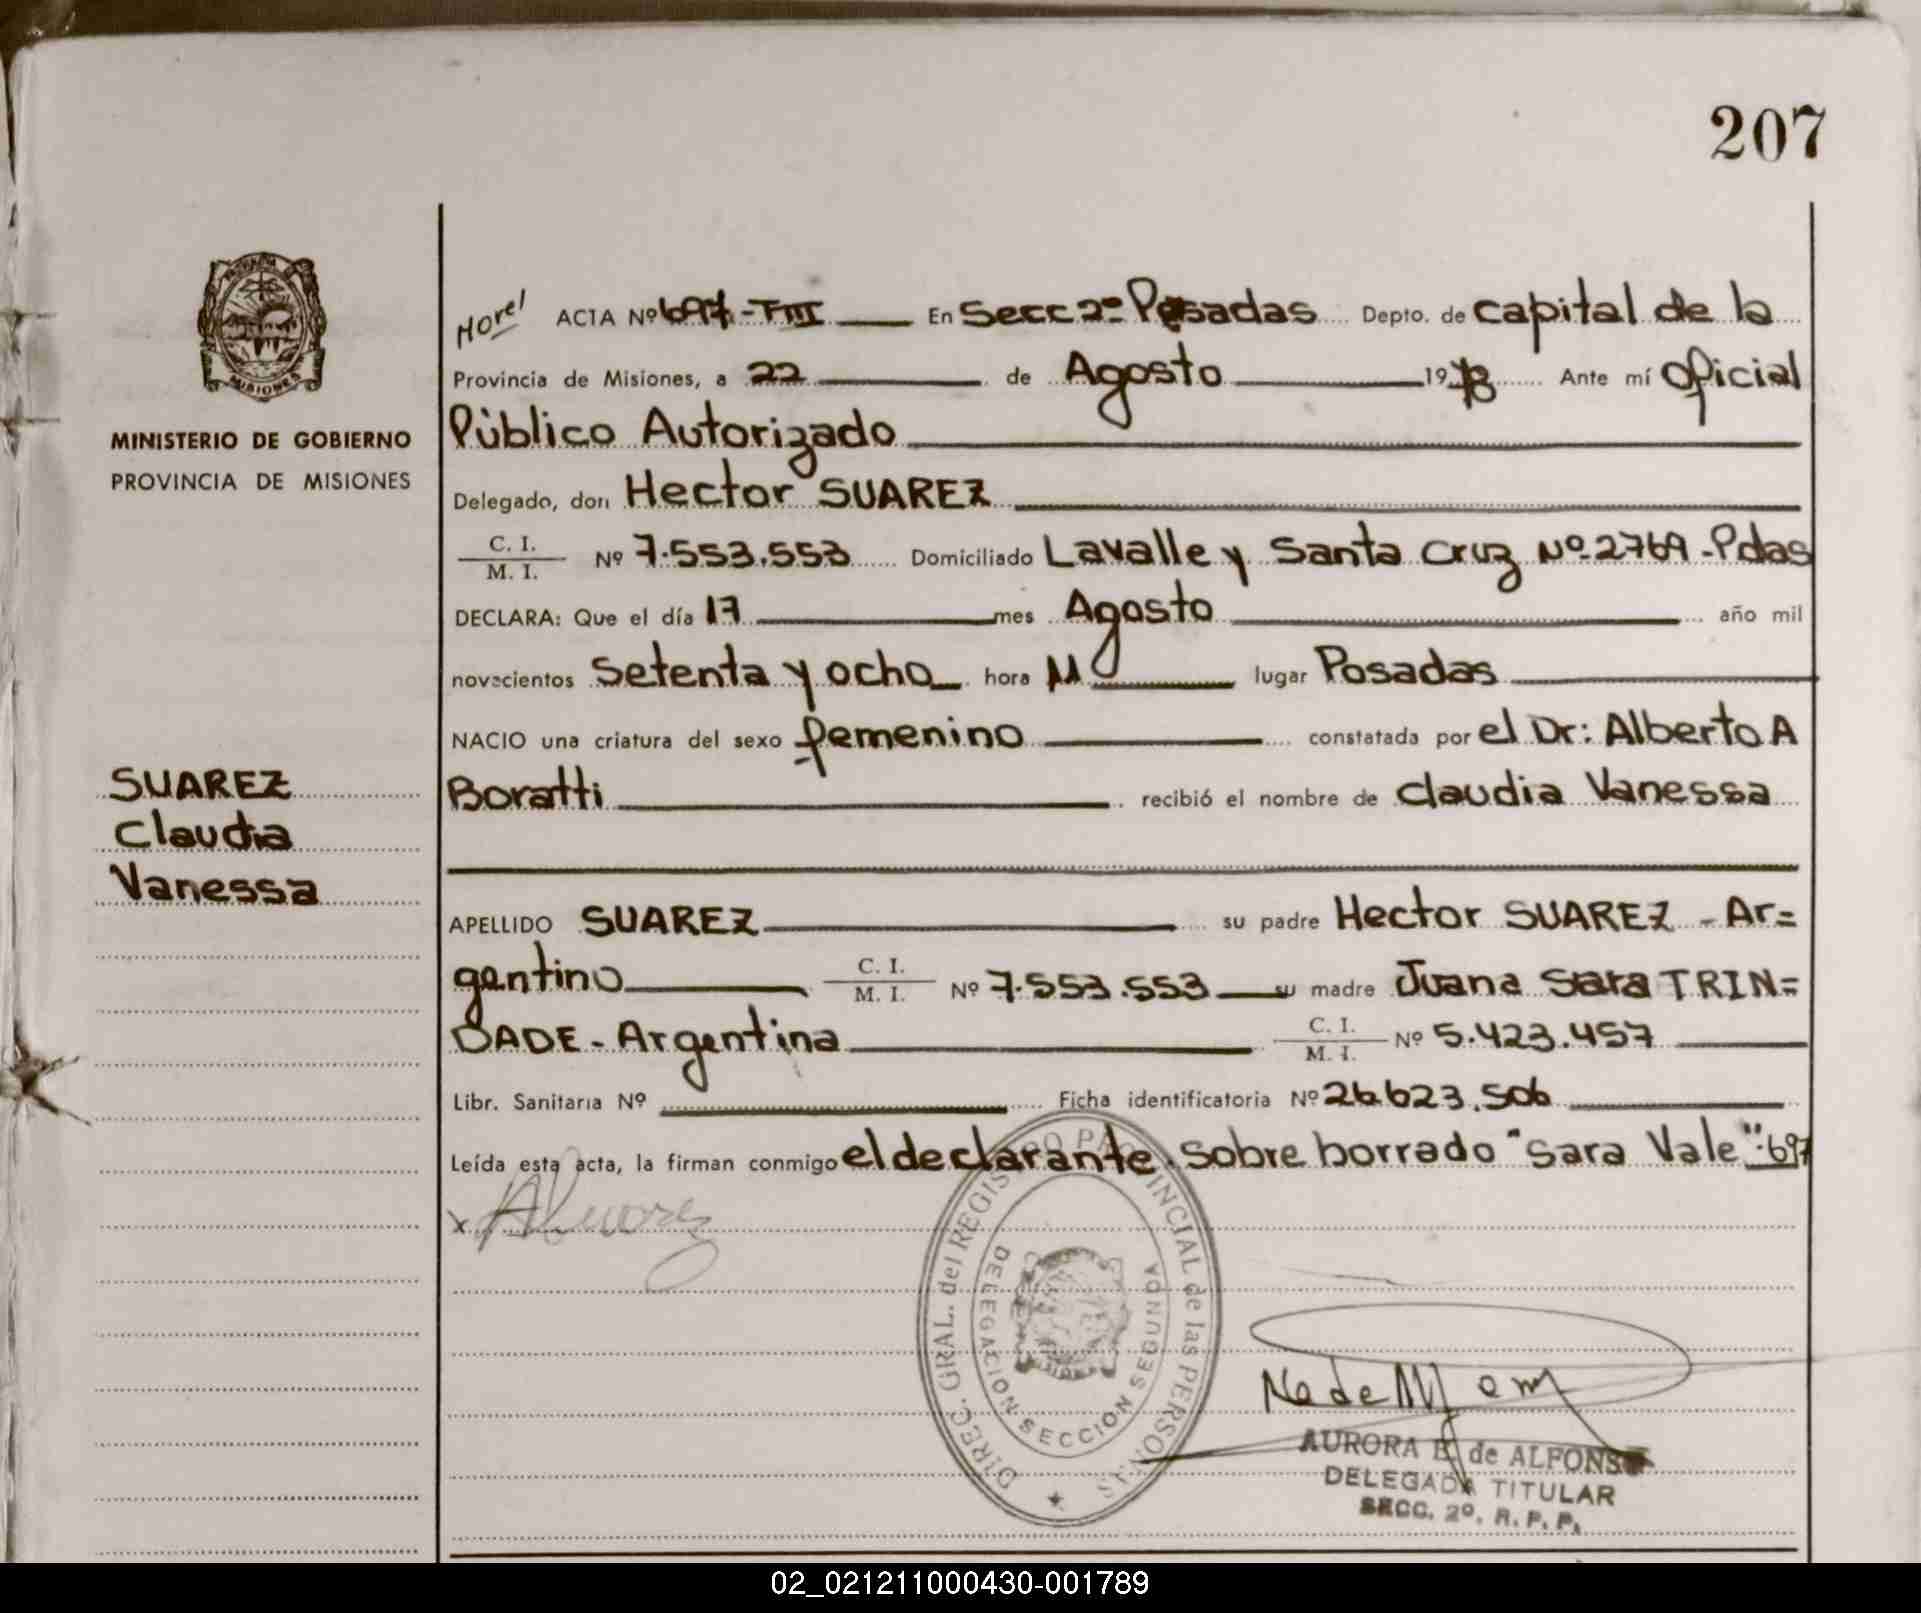 207
ACTA Nº 697-TIII En Secc 2º Posadas Depto. de Capital de la
Provincia de Misiones, a 22 de Agosto 1978 Ante mí Oficial
MINISTERIO DE GOBIERNO
PROVINCIA DE MISIONES
Público Autorizado
Delegado, don Hector SUAREZ
C. I.
M. I. Nº 7.553.553 Domiciliado Lavalle y Santa Cruz Nº 2769-Pdas
DECLARA: Que el día 17 mes Agosto año mil
novecientos setenta y ocho hora lugar Posadas
NACIO una criatura del sexo femenino constatada por el Dr: Alberto A
SUAREZ
Claudia
Vanessa
Boratti recibió el nombre de Claudia Vanessa
APELLIDO SUAREZ su padre Hector SUAREZ - Ar=
gentino C. I.
M. I. Nº 7.553.553 su madre Juana Sara TRIN=
DADE - Argentina C. I.
M. I. Nº 5.423.457
Libr. Sanitaria Nº Ficha identificatoria Nº 26.623.506
Leída esta acta, la firman conmigo el declarante. Sobre borrado "Sara Vale":697
x
DIREC. GRAL. del REGISTRO PROVINCIAL de las PERSONAS
DELEGACION SECCION SEGUNDA
MISIONES
AURORA E. de ALFONSO
DELEGADA TITULAR
SECC. 2º. R. P. P.
02_021211000430-001789